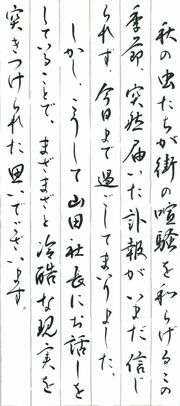 秋の虫たちが街の喧騒を和らげるこの
季節 突然届いた訃報がいまだ信じ
られず、今日まで過ごしてまいりました。
しかし、こうして山田社長にお話しを
していることで、まざまざと冷酷な現実を
突きつけられた思いでございます。